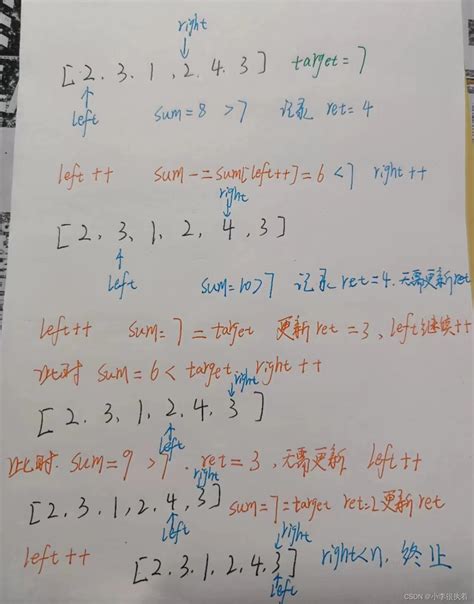 right
[2.3.1.2.4.3] target=7
left sum=8>7 记录 ret=4
left++ sum-=sum[left++]=6<7 right++
right
[2,3,1,2,4,3]
left sum=10>7 记录 ret=4.无需更新ret
left++ sum=7=target 更新ret=3,left继续++
此时 sum=6<target.right++
right
[2.3,1,2,4,3]
left
此时.sum=9>7.ret=3,无需更新 left++
right
[2.3,1,2,4,3] sum=7=target ret=2更新ret
left
right
left++ [2.3.1.2.4.3] right<n,终止
left
CSDN @小李很执着